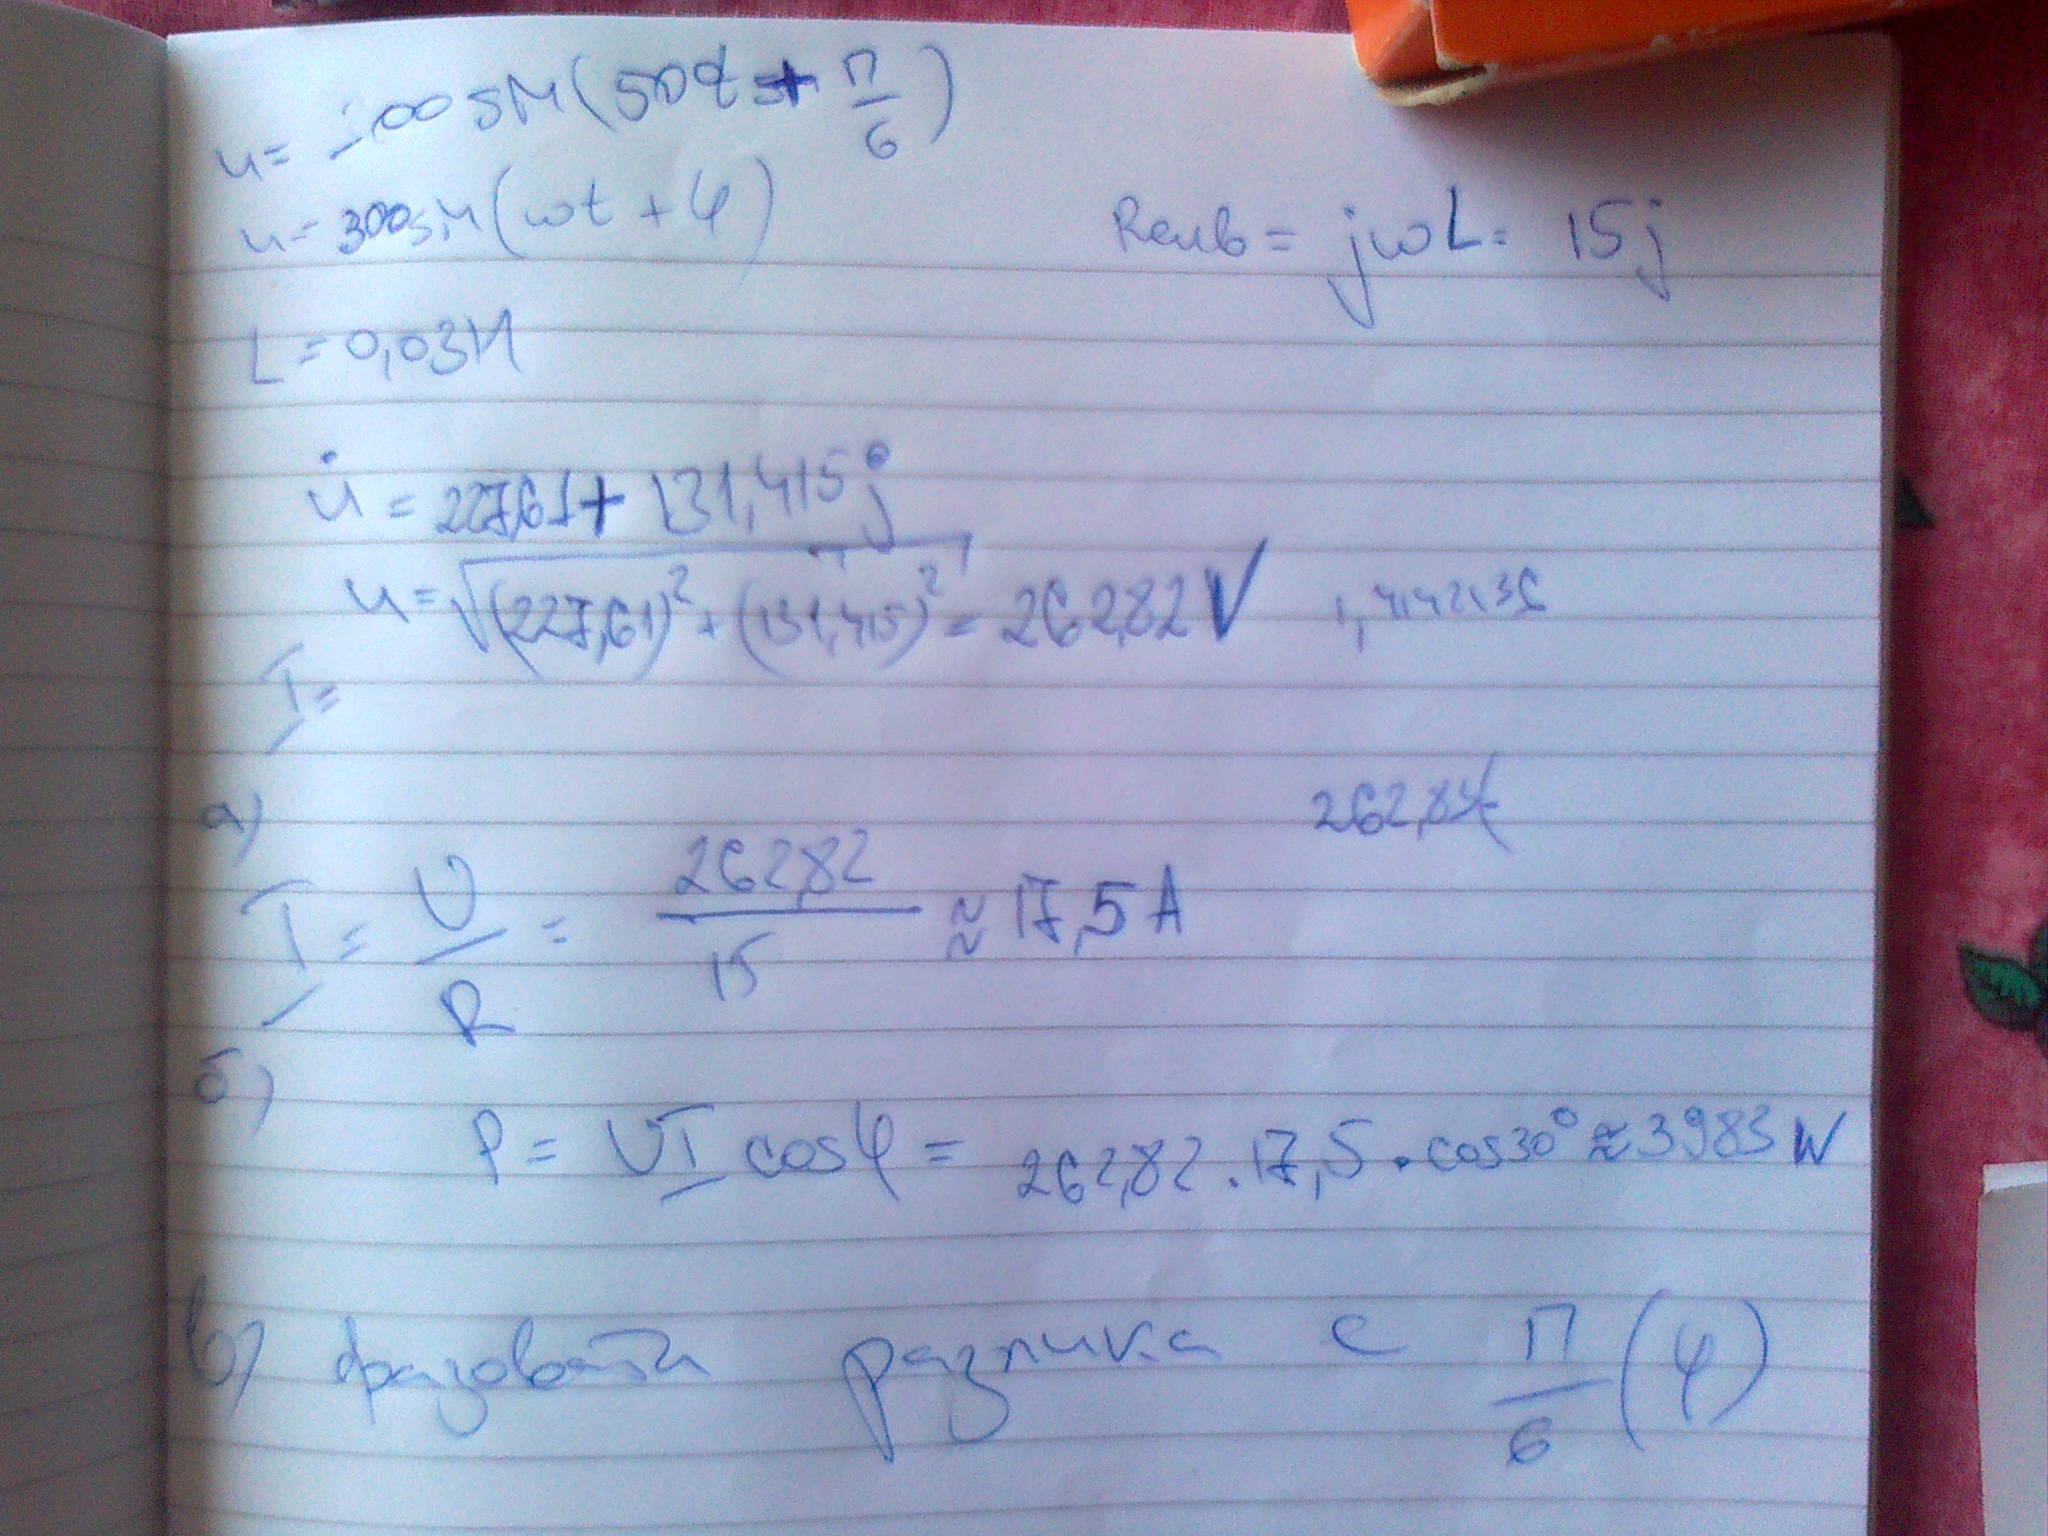 u = 300 sin(500t + π/6)
u = 300 sin(ωt + φ)
Rекв = jωL = 15j
L = 0,03H
u̇ = 227,61 + 131,415j
u = √(227,61)² + (131,415)² = 262,82 V 1,4142136
I =
а)
262,84
I = U/R = 262,82/15 ≈ 17,5 A
б)
P = UI cosφ = 262,82 . 17,5 . cos30° ≈ 3983 W
в) фазовата разлика е π/6 (φ)